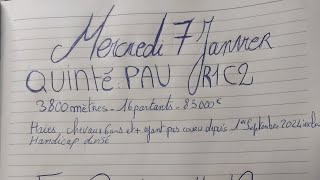 Mercredi 7 Janvier
QUINTÉ: PAU R1C2
3800 mètres - 16 partants - 85000€
Haies: chevaux 6 ans et + ayant pas couru depuis 1er Septembre 2024 inclus
Handicap divisé